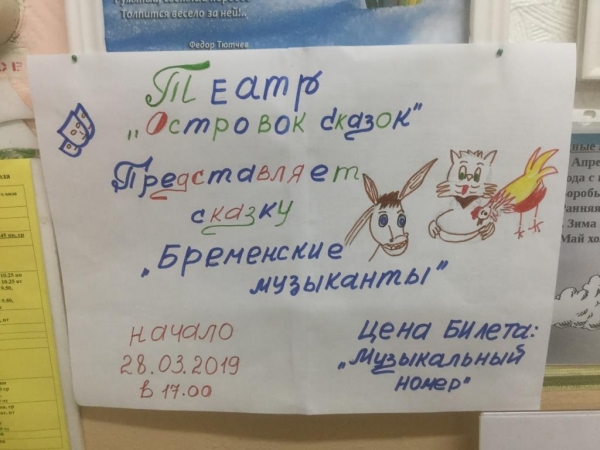 Толпится весело за ней!..
Федор Тютчев
Театр
"Островок сказок"
Представляет
сказку
"Бременские
музыканты"
начало
28.03.2019
в 17.00
Цена билета:
"Музыкальный
номер"